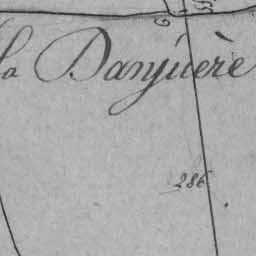 la Danjuère
286